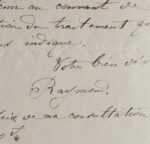 au courant de
du traitement qu
indique.
Votre bien dé
Raymond.
de ma consultation